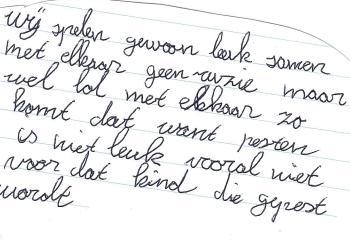 wij spelen gewoon leuk samen
met elkaar geen ruzie maar
wel lol met elkaar zo
komt dat want pesten
is niet leuk vooral niet
voor dat kind die gepest
wordt